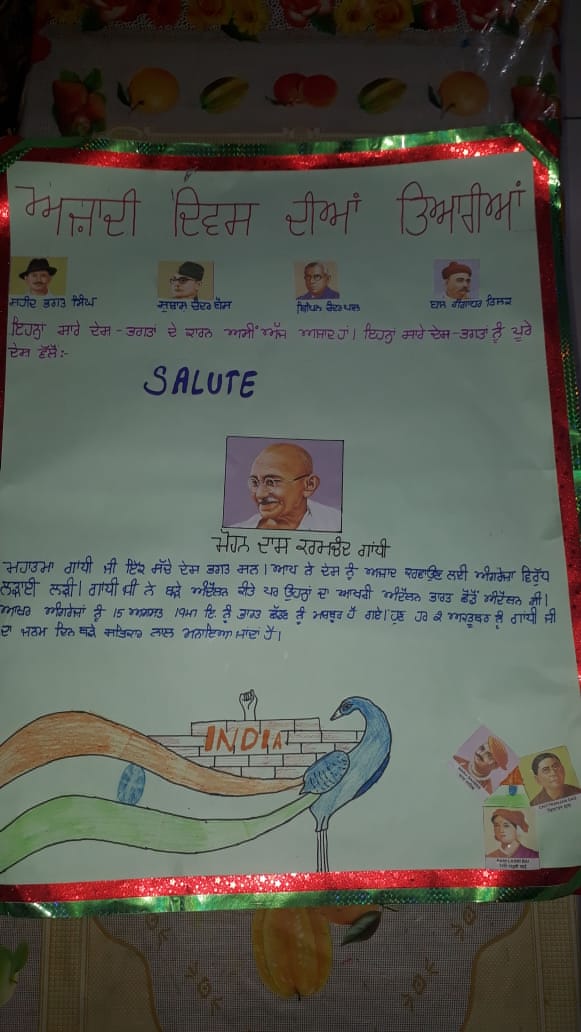 ਅਜ਼ਾਦੀ ਦਿਵਸ ਦੀਆਂ ਤਿਆਰੀਆਂ
ਸ਼ਹੀਦ ਭਗਤ ਸਿੰਘ
ਸੁਬਾਸ਼ ਚੰਦਰ ਬੋਸ
ਬਿਪਿਨ ਚੰਦਰ ਪਾਲ
ਬਾਲ ਗੰਗਾਧਰ ਤਿਲਕ
ਇਹਨਾਂ ਸਾਰੇ ਦੇਸ਼-ਭਗਤਾਂ ਦੇ ਕਾਰਨ ਅਸੀਂ ਅੱਜ ਅਜ਼ਾਦ ਹਾਂ। ਇਹਨਾਂ ਸਾਰੇ ਦੇਸ਼-ਭਗਤਾਂ ਨੂੰ ਪੂਰੇ
ਦੇਸ਼ ਵੱਲੋਂ:-
SALUTE
ਮੋਹਨ ਦਾਸ ਕਰਮਚੰਦ ਗਾਂਧੀ
ਮਹਾਤਮਾ ਗਾਂਧੀ ਜੀ ਇੱਕ ਸੱਚੇ ਦੇਸ਼ ਭਗਤ ਸਨ। ਆਪ ਨੇ ਦੇਸ਼ ਨੂੰ ਅਜ਼ਾਦ ਕਰਵਾਉਣ ਲਈ ਅੰਗਰੇਜ਼ਾਂ ਵਿਰੁੱਧ
ਲੜਾਈ ਲੜੀ। ਗਾਂਧੀ ਜੀ ਨੇ ਬੜੇ ਅੰਦੋਲਨ ਕੀਤੇ ਪਰ ਉਹਨਾਂ ਦਾ ਆਖਰੀ ਅੰਦੋਲਨ ਭਾਰਤ ਛੱਡੋ ਅੰਦੋਲਨ ਸੀ।
ਆਖਰ ਅੰਗਰੇਜਾਂ ਨੂੰ 15 ਅਗਸਤ 1947 ਇ. ਨੂੰ ਭਾਰਤ ਛੱਡਣ ਨੂੰ ਮਜਬੂਰ ਹੋ ਗਏ। ਹੁਣ ਹਰ 2 ਅਕਤੂਬਰ ਨੂੰ ਗਾਂਧੀ ਜੀ
ਦਾ ਜਨਮ ਦਿਨ ਬੜੇ ਸਤਿਕਾਰ ਨਾਲ ਮਨਾਇਆ ਜਾਂਦਾ ਹੈ।
INDIA
CHITTARANJAN DAS
RANI LAXMI BAI